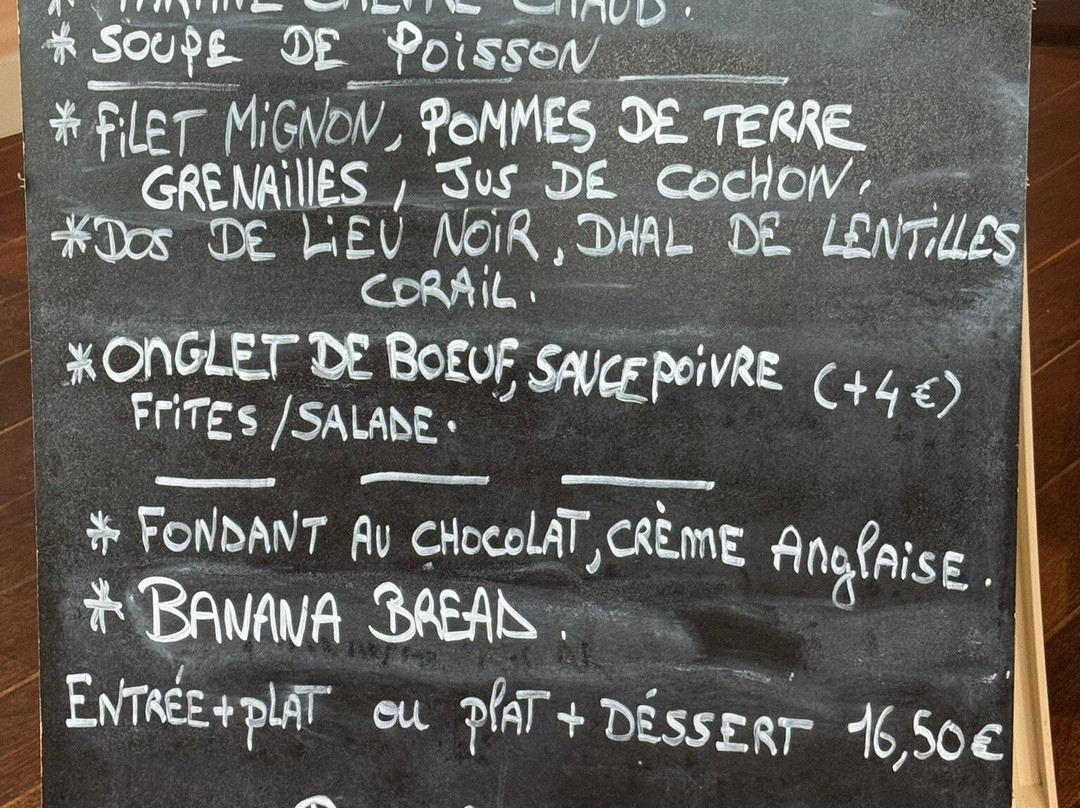 * TARTINE CHÈVRE CHAUD.
* SOUPE DE POISSON
* FILET MIGNON, POMMES DE TERRE
GRENAILLES, JUS DE COCHON.
* DOS DE LIEU NOIR, DHAL DE LENTILLES
CORAIL.
* ONGLET DE BOEUF, SAUCE POIVRE (+4€)
FRITES / SALADE.
* FONDANT AU CHOCOLAT, CRÈME ANGLAISE.
* BANANA BREAD.
ENTRÉE + PLAT OU PLAT + DÉSSERT 16,50€